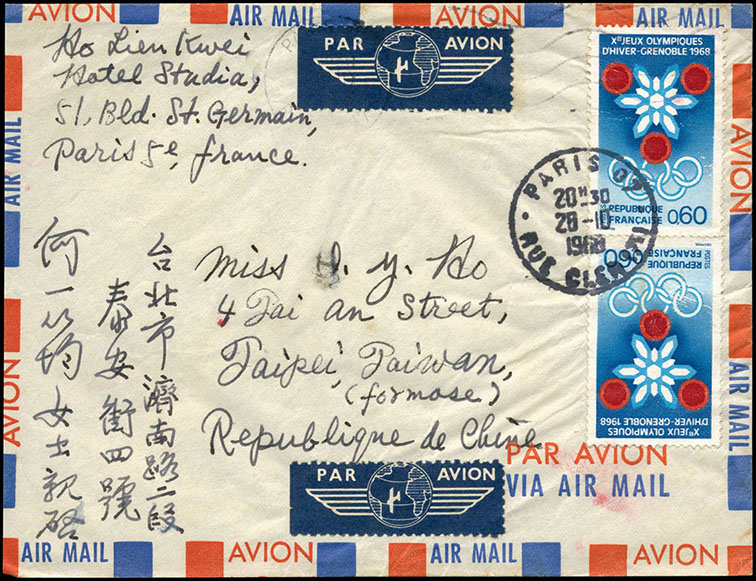 AVION
AIR MAIL
AVION
AIR MAIL
Ho Lien Kwei
Hotel Stadia,
51, Bld. St. Germain,
Paris 5e, France.
PAR AVION
XES JEUX OLYMPIQUES
D'HIVER-GRENOBLE 1968
RÉPUBLIQUE
FRANÇAISE 0,60
PARIS
20H30
28-10
RUE
0,60 RÉPUBLIQUE
FRANÇAISE
POSTES
XES JEUX OLYMPIQUES
D'HIVER-GRENOBLE 1968
Miss I. Y. Ho
4 Tai An Street,
Taipei, Taiwan,
(formose)
Republique de Chine
台北市濟南路二段
泰安街四號
何一鈞女士親啓
PAR AVION
VIA AIR MAIL
PAR AVION
AIR MAIL
AVION
AIR MAIL
AVION
AIR MAIL
AVION
AIR MAIL
AVION
AIR MAIL
AVION